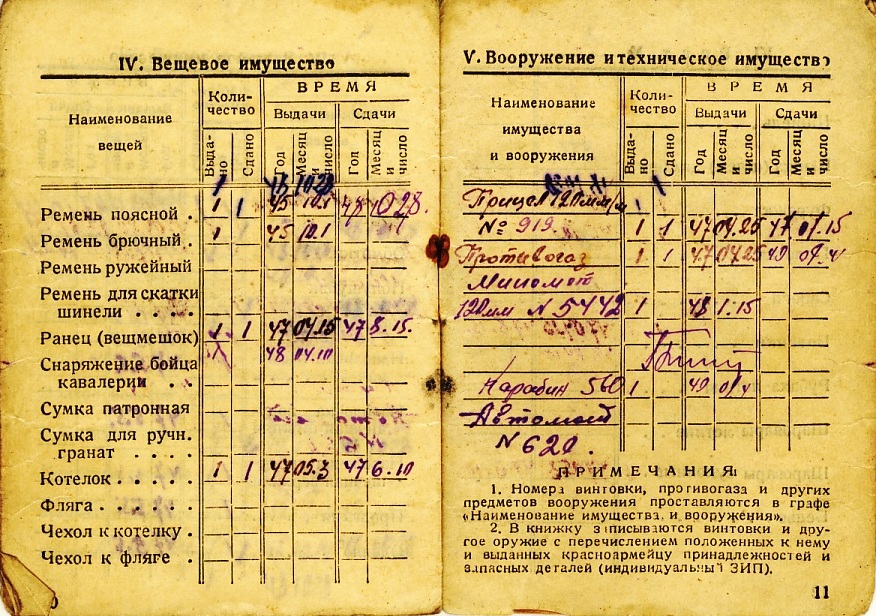 IV. Вещевое имущество
Наименование вещей
Коли-
чество
ВРЕМЯ
Выдачи
Сдачи
Выда-
но
Сдано
Год
Месяц
и
число
Год
Месяц
и
число
1 43 10.28
Ремень поясной . 1 1 45 10.1 48 10 28.
Ремень брючный . 1 45 10.1
Ремень ружейный
Ремень для скатки
шинели . . . .
Ранец (вещмешок) 1 1 47 04.15 47 8.15.
48 04.10
Снаряжение бойца
кавалерии . .
Сумка патронная
Сумка для ручн.
гранат . . . .
Котелок . . . . . 1 1 47 05.3 47 6.10
Фляга . . . . . .
Чехол к котелку .
Чехол к фляге .
V. Вооружение и техническое имущество
Наименование
имущества
и вооружения
Коли-
чество
ВРЕМЯ
Выдачи
Сдачи
Выда-
но
Сдано
Год
Месяц
и
число
Год
Месяц
и
число
Прицел 120 мм/м
№ 919. 1 1 47 04.25 47 07.15
Противогаз 1 1 47 04.25 49
Миномет
120 мм N 5442 1 48 1.15
Карабин 560 1 49
Автомат
N 620.
ПРИМЕЧАНИЯ:
1. Номера винтовки, противогаза и других
предметов вооружения проставляются в графе
«Наименование имущества и вооружения».
2. В книжку записываются винтовки и дру-
гое оружие с перечислением положенных к нему
и выданных красноармейцу принадлежностей и
запасных деталей (индивидуальный ЗИП).
11